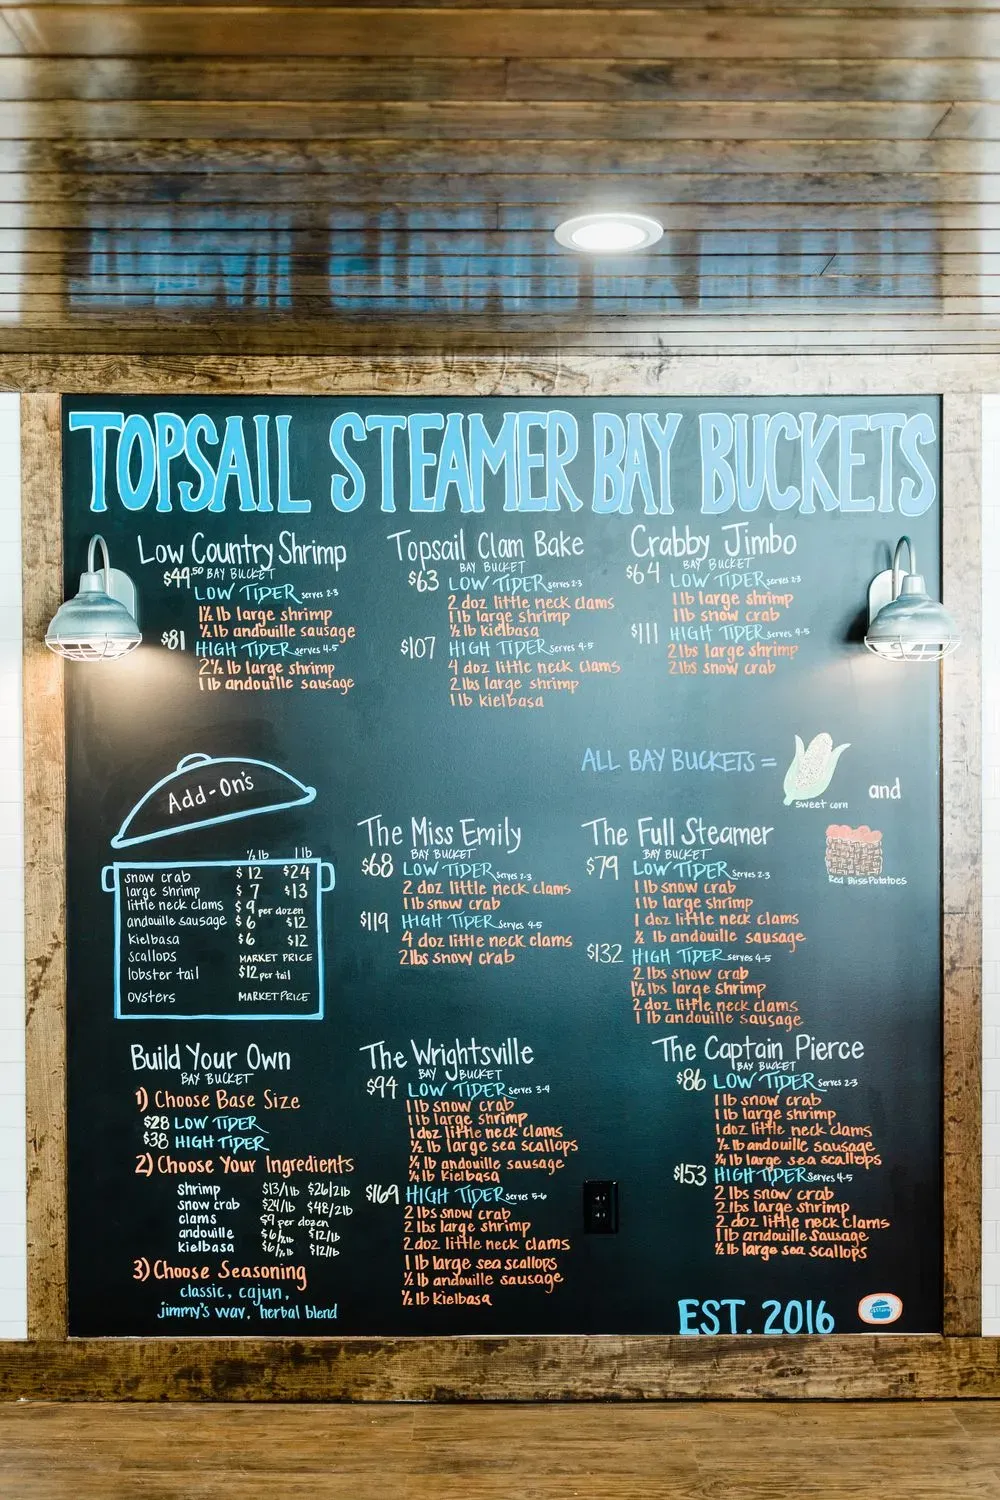 TOPSAIL STEAMER BAY BUCKETS
Low Country Shrimp
BAY BUCKET
$49.50 LOW TIDER serves 2-3
1½ lb large shrimp
½ lb andouille sausage
$81 HIGH TIDER serves 4-5
2½ lb large shrimp
1 lb andouille sausage
Topsail Clam Bake
BAY BUCKET
$63 LOW TIDER serves 2-3
2 doz little neck clams
1 lb large shrimp
½ lb kielbasa
$107 HIGH TIDER serves 4-5
4 doz little neck clams
2 lbs large shrimp
1 lb kielbasa
Crabby Jimbo
BAY BUCKET
$64 LOW TIDER serves 2-3
1 lb large shrimp
1 lb snow crab
$111 HIGH TIDER serves 4-5
2 lbs large shrimp
2 lbs snow crab
ALL BAY BUCKETS =
sweet corn
and
Red Bliss Potatoes
Add-On's
½ lb 1 lb
snow crab $12 $24
large shrimp $7 $13
little neck clams $9 per dozen
andouille sausage $6 $12
kielbasa $6 $12
scallops MARKET PRICE
lobster tail $12 per tail
oysters MARKET PRICE
The Miss Emily
BAY BUCKET
$68 LOW TIDER serves 2-3
2 doz little neck clams
1 lb snow crab
$119 HIGH TIDER serves 4-5
4 doz little neck clams
2 lbs snow crab
The Full Steamer
BAY BUCKET
$79 LOW TIDER serves 2-3
1 lb snow crab
1 lb large shrimp
1 doz little neck clams
½ lb andouille sausage
$132 HIGH TIDER serves 4-5
2 lbs snow crab
1½ lbs large shrimp
2 doz little neck clams
1 lb andouille sausage
Build Your Own
BAY BUCKET
1) Choose Base Size
$28 LOW TIDER
$38 HIGH TIDER
2) Choose Your Ingredients
Shrimp $13/1 lb $26/2 lb
snow crab $24/lb $48/2 lb
clams $9 per dozen
andouille $6/½ lb $12/lb
kielbasa $6/½ lb $12/lb
3) Choose Seasoning
classic, cajun,
jimmy's way, herbal blend
The Wrightsville
BAY BUCKET
$94 LOW TIDER serves 3-4
1 lb snow crab
1 lb large shrimp
1 doz little neck clams
½ lb large sea scallops
¼ lb andouille sausage
¼ lb kielbasa
$169 HIGH TIDER serves 5-6
2 lbs snow crab
2 lbs large shrimp
2 doz little neck clams
1 lb large sea scallops
½ lb andouille sausage
½ lb kielbasa
The Captain Pierce
BAY BUCKET
$86 LOW TIDER serves 2-3
1 lb snow crab
1 lb large shrimp
1 doz little neck clams
½ lb andouille sausage
¼ lb large sea scallops
$153 HIGH TIDER serves 4-5
2 lbs snow crab
2 lbs large shrimp
2 doz little neck clams
1 lb andouille sausage
½ lb large sea scallops
EST. 2016